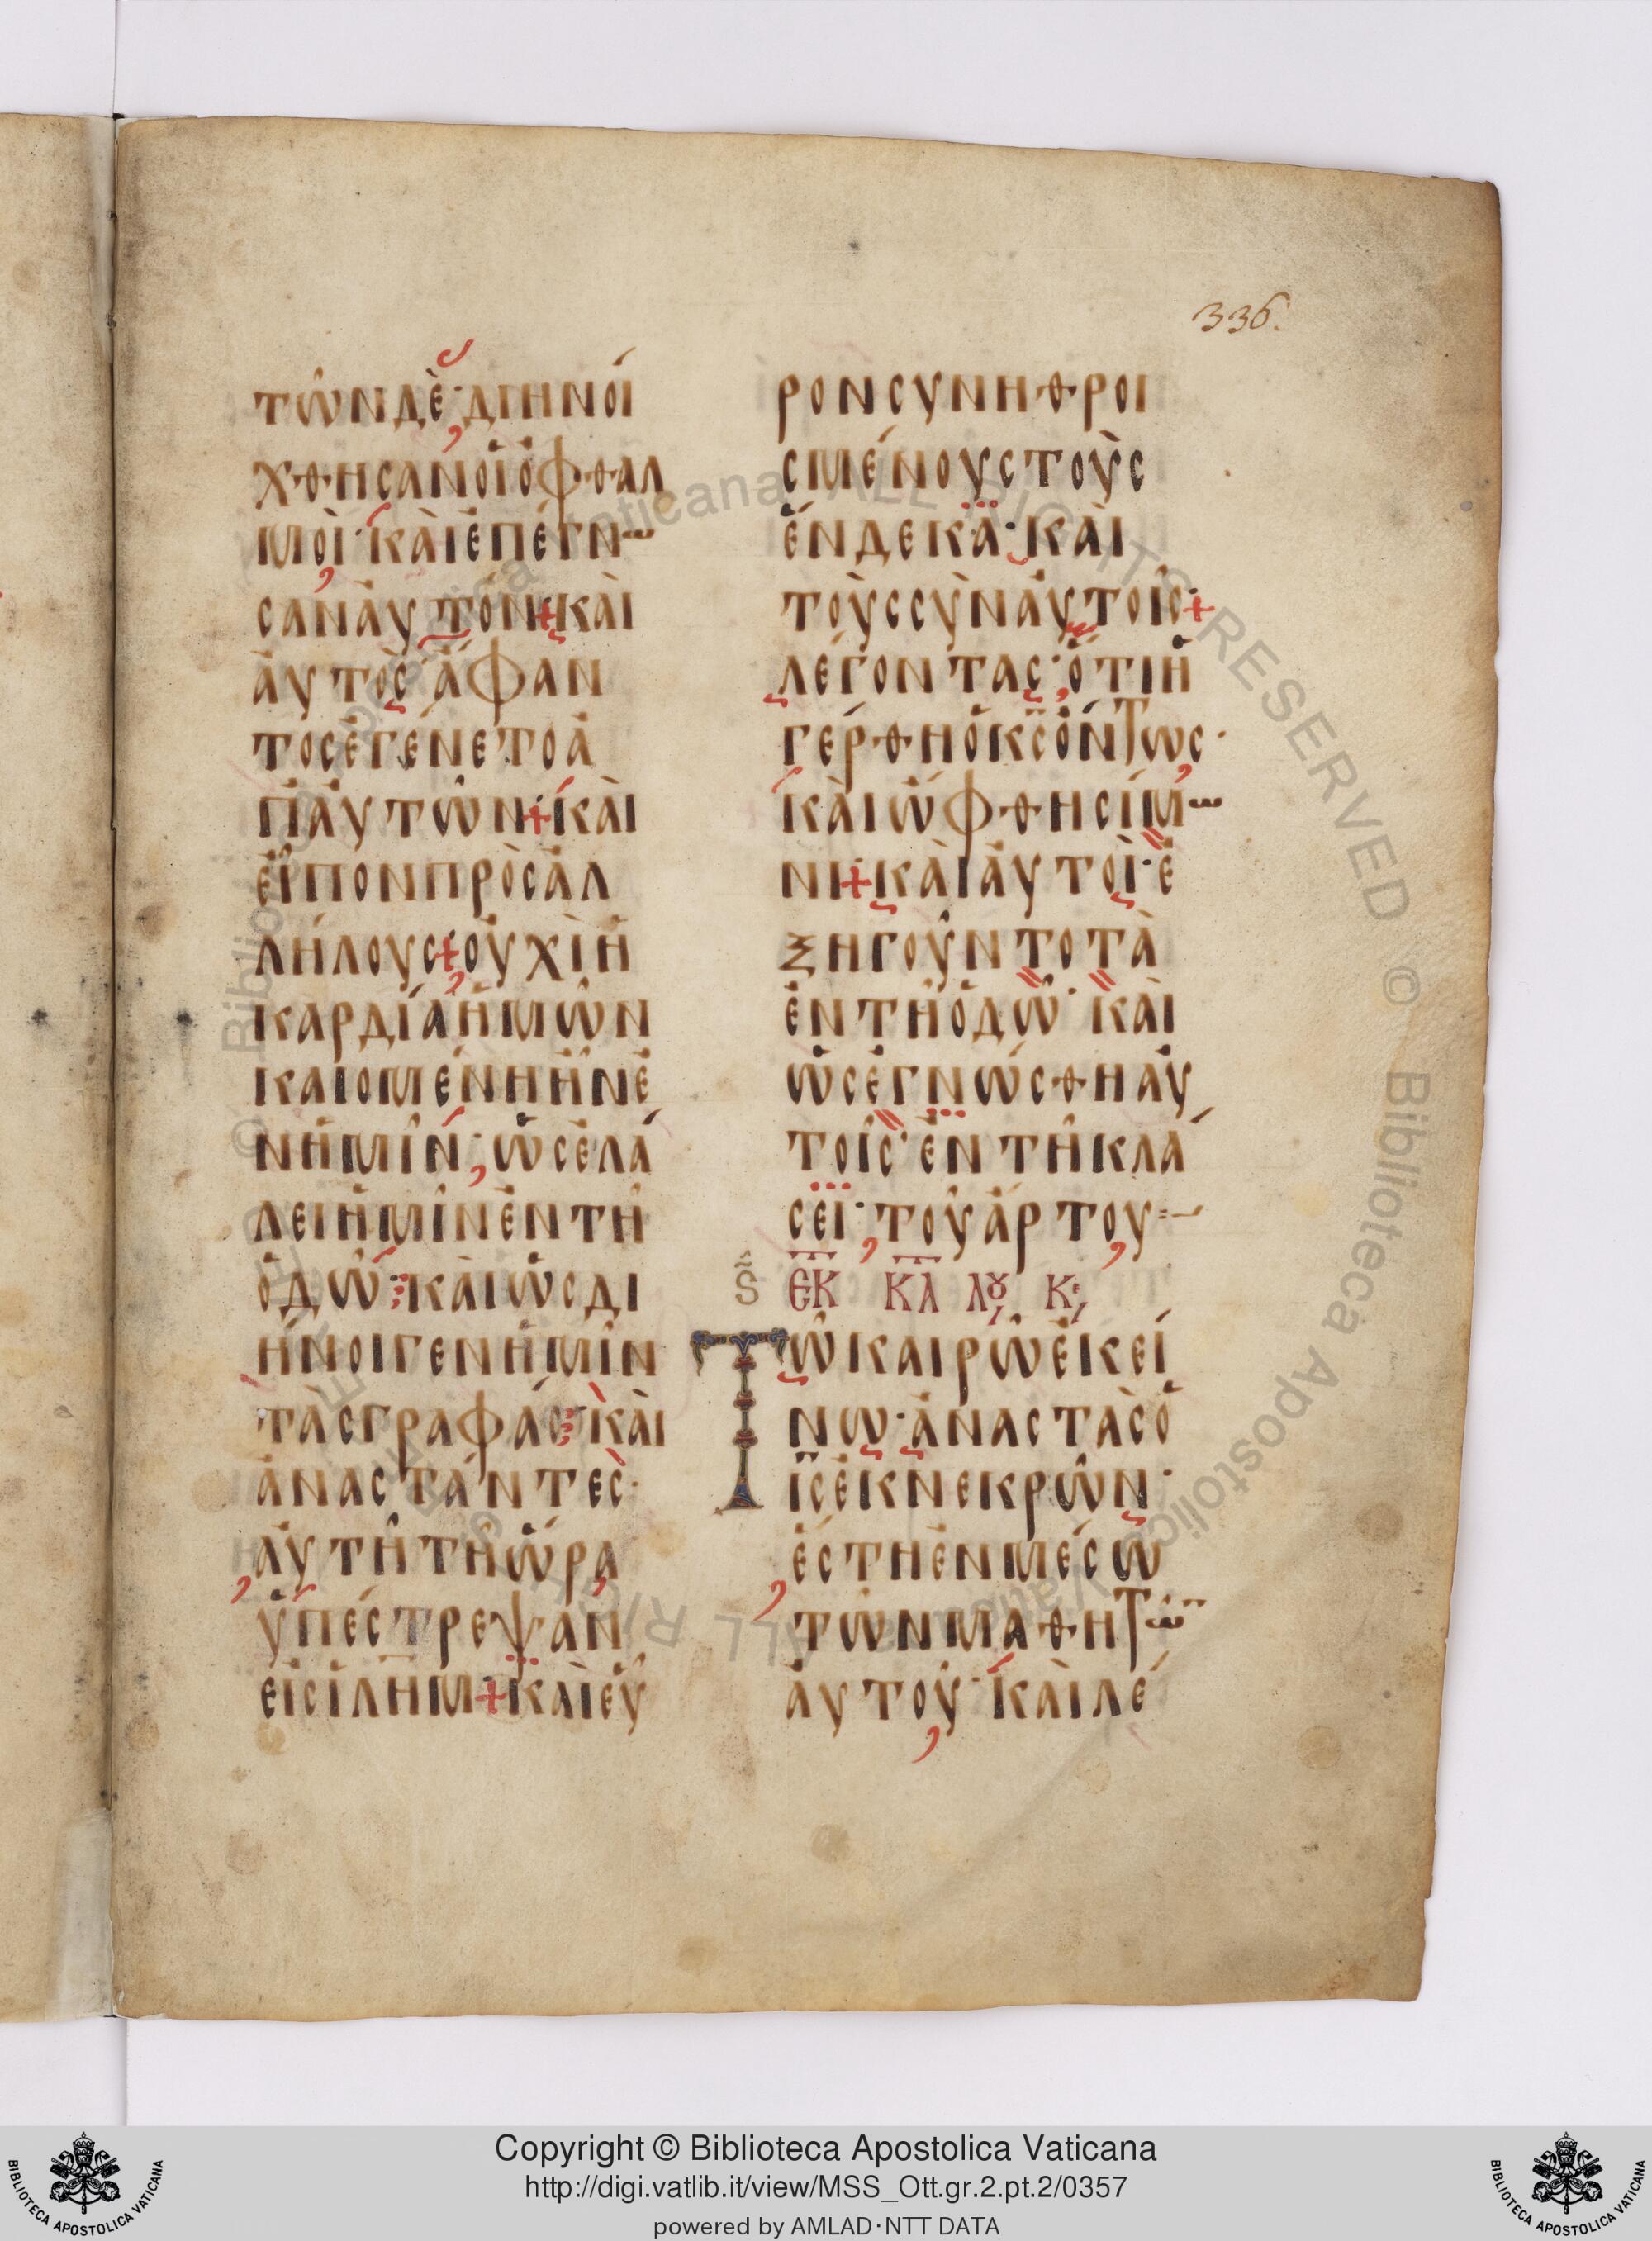 336.
τῶν δὲ· διηνοί
χθησαν οἱ ὀφθαλ
μοὶ· καὶ ἐπέγνω
σαν αὐτὸν + καὶ
αὐτὸς ἄφαν
τος ἐγένετο ἀ
π' αὐτῶν + καὶ
εἶπον πρὸς ἀλ
λήλους + οὐχὶ ἡ
καρδία ἡμῶν
καιομένη ἦν ἐ
ν ἡμῖν· ὡς ἐλά
λει ἡμῖν ἐν τῇ
ὁδῶ· καὶ ὡς δι
ήνοιγεν ἡμῖν
τὰς γραφάς· καὶ
ἀναστάντες·
αὐτῇ τῇ ὥρα
ὑπέστρεψαν
εἰς ἰλημ + καὶ εὗ
ρον συνηθροι
σμένους τοὺς
ἕνδεκα· καὶ
τοὺς σὺν αὐτοῖς +
λέγοντας· ὅτι ἠ
γέρθη ὁ κς ὄντως·
καὶ ὤφθη σίμω
νι + καὶ αὐτοὶ· ἐ
ξηγοῦντο τὰ
ἐν τῇ ὁδῶ· καὶ
ὡς ἐγνώσθη αὐ
τοῖς· ἐν τῇ κλά
σει· τοῦ ἄρτου
ΕΚ ΚΛ ΛΟΥ Κ
Τῶ καιρῶ ἐκεί
νω· ἀναστὰς ὁ
ις ἐκ νεκρῶν·
ἔστη ἐν μέσω
τῶν μαθητῶν
αὐτοῦ· καὶ λέ
Copyright © Biblioteca Apostolica Vaticana
http://digi.vatlib.it/view/MSS_Ott.gr.2.pt.2/0357
powered by AMLAD·NTT DATA
BIBLIOTECA APOSTOLICA VATICANA
BIBLIOTECA APOSTOLICA VATICANA